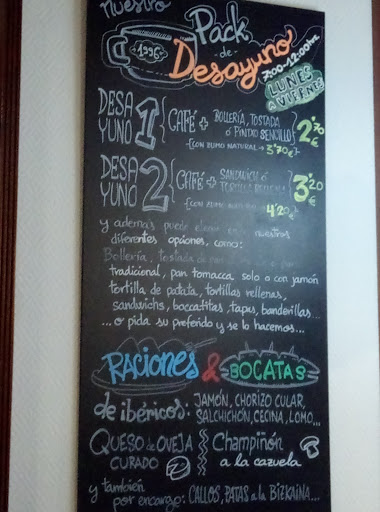 nuestro
Pack
1996
de
Desayuno
7:00-12:00hrs
LUNES
a VIERNES
DESA
YUNO 1 { CAFÉ + BOLLERÍA, TOSTADA
Ó PINCHO SENCILLO } 2'70 €
-{CON ZUMO NATURAL → 3'70€}-
DESA
YUNO 2 { CAFÉ + SANDWICH Ó
TORTILLA RELLENA } 3'20 €
-{CON ZUMO NATURAL → 4'20€}-
y además puede elegir nuestras
diferentes opciones, como:
Bollería, tostada de pan
tradicional, pan tomaca solo o con jamón
tortilla de patata, tortillas rellenas,
sandwichs, boccatitas, tapas, banderillas...
... o pida su preferido y se lo hacemos...
RACIONES & BOCATAS
de ibéricos: JAMÓN, CHORIZO CULAR,
SALCHICHÓN, CECINA, LOMO...
QUESO de OVEJA
CURADO
Champiñón
a la cazuela
y también
por encargo: CALLOS, PATAS a la BIZKAINA...